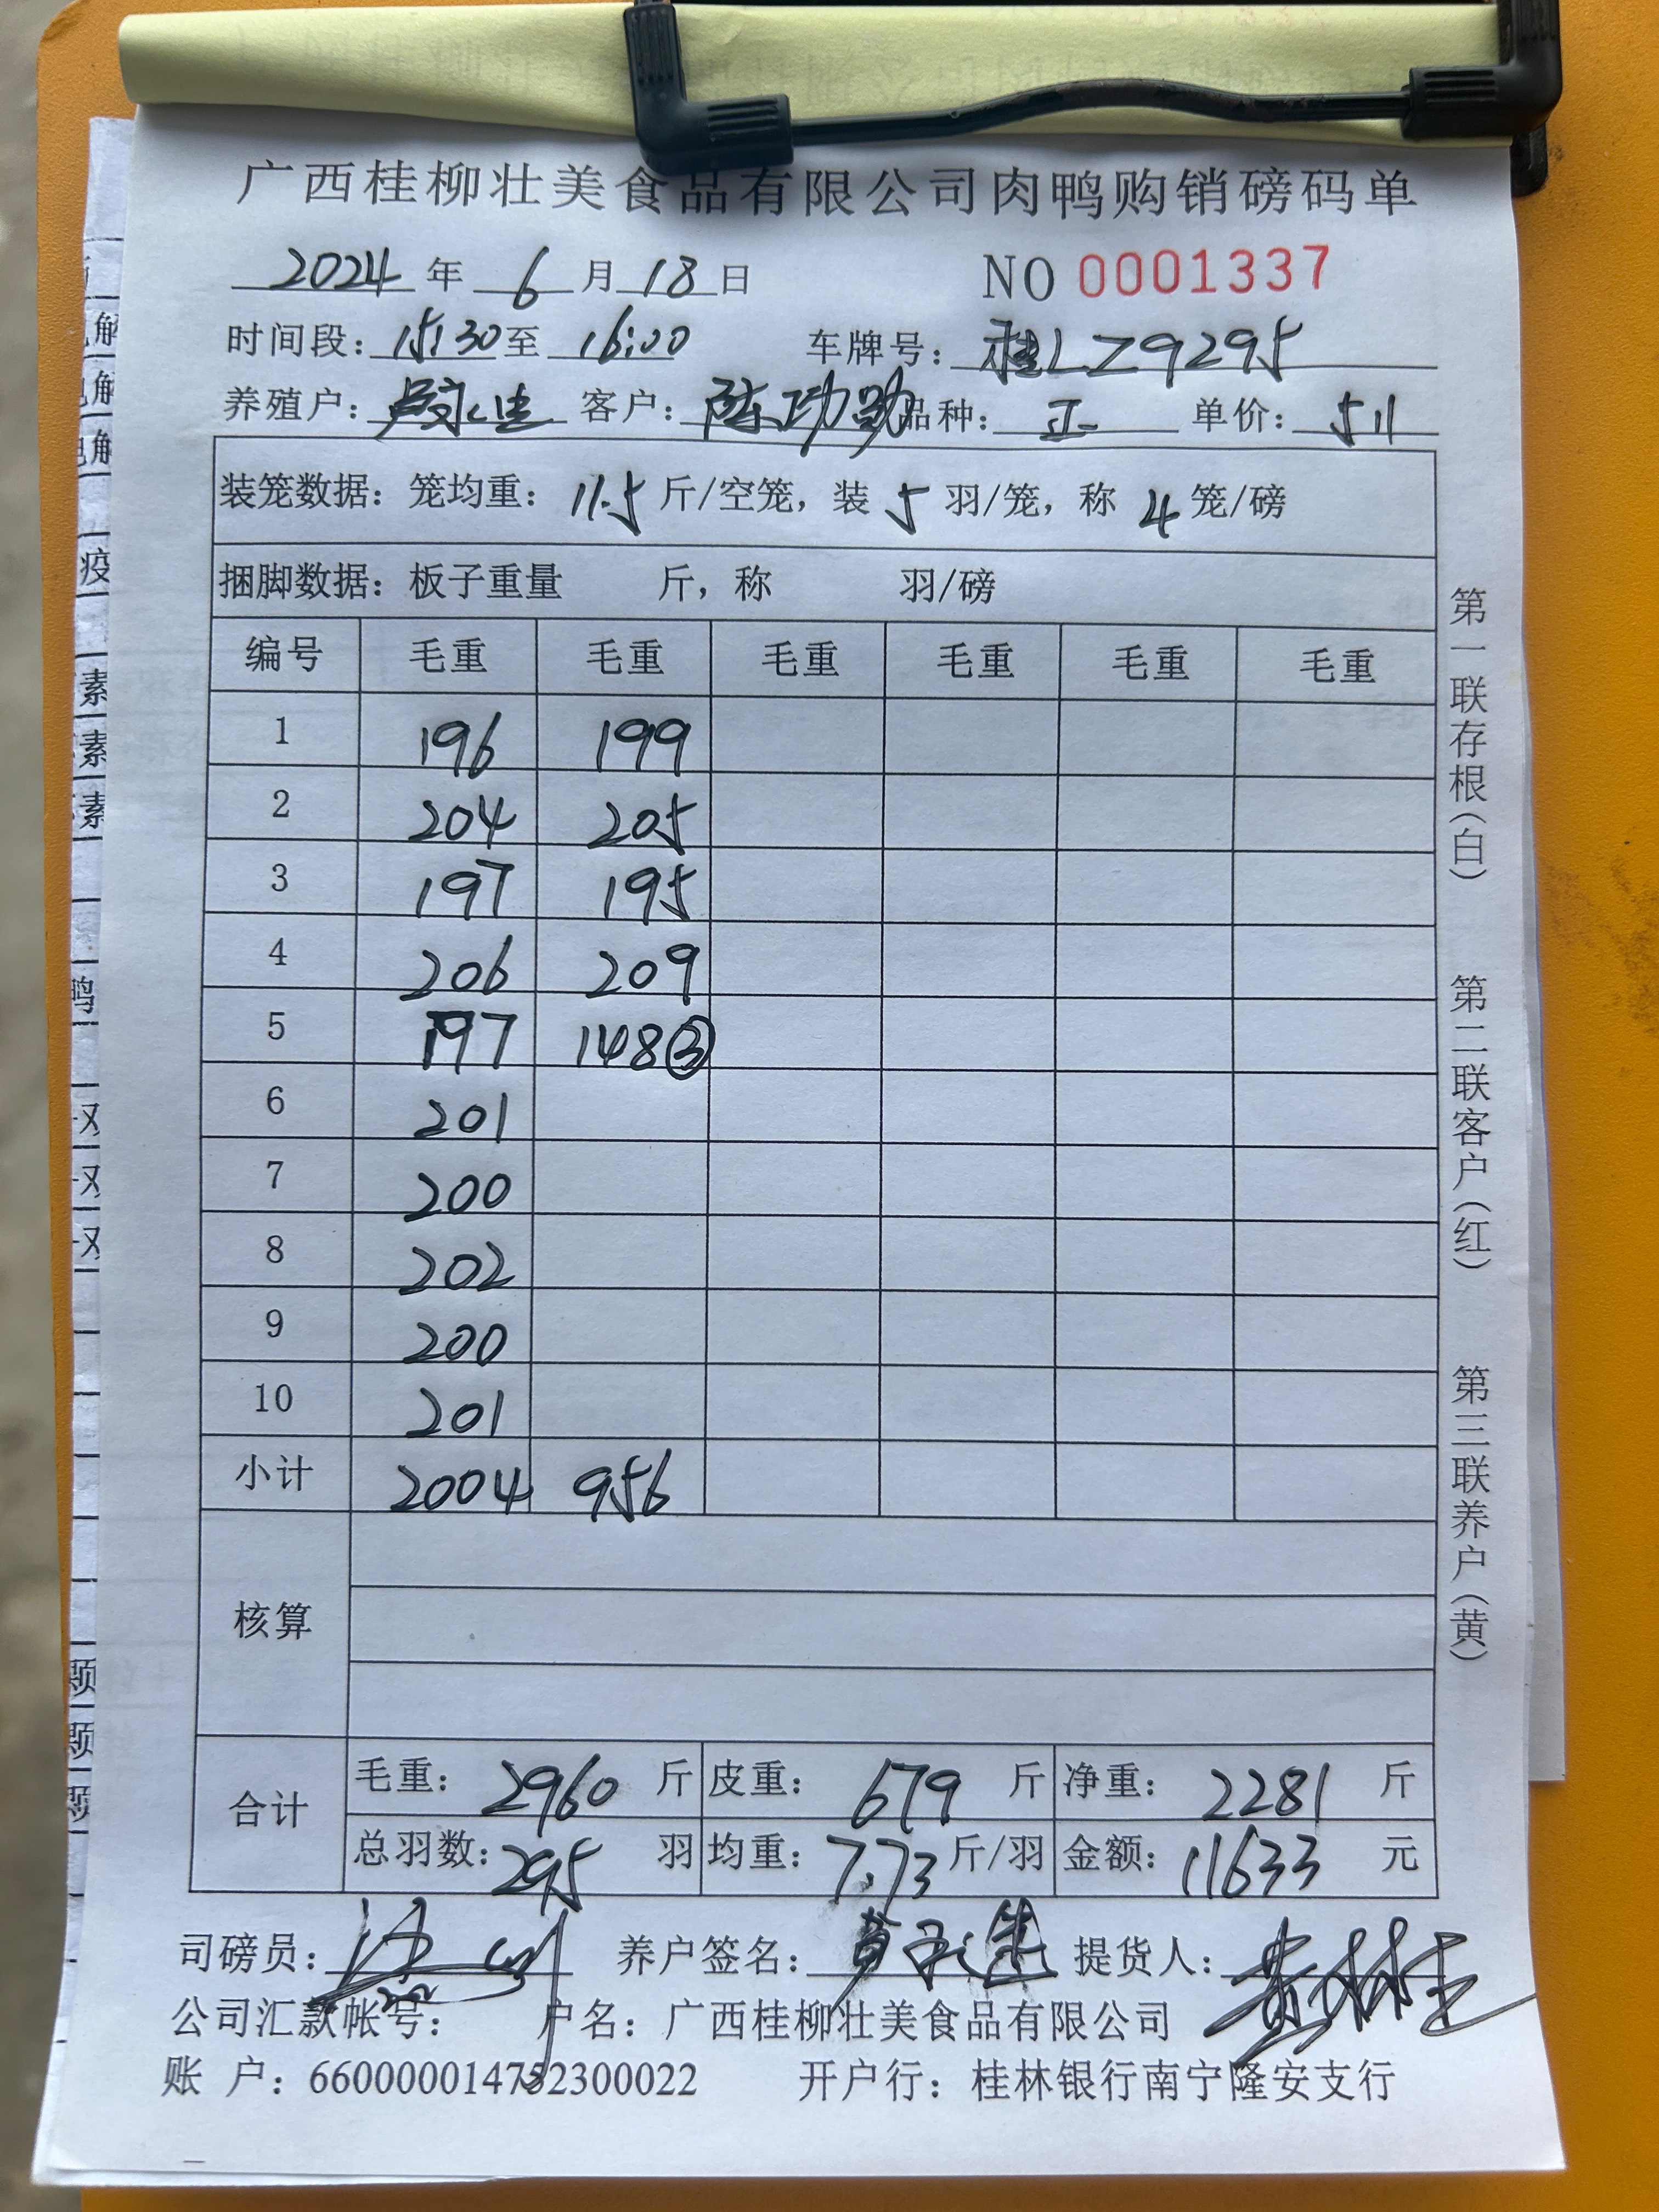 广西桂柳壮美食品有限公司肉鸭购销磅码单
2024 年 6 月 18 日 NO 0001337
时间段: 15:30 至 16:00 车牌号: 桂LZ9295
养殖户: 客户: 陈功勋 品种: 正 单价: 511
装笼数据: 笼均重: 11.5 斤/空笼, 装 5 羽/笼, 称 4 笼/磅
捆脚数据: 板子重量 斤, 称 羽/磅
编号 毛重 毛重 毛重 毛重 毛重 毛重
1 196 199
2 204 205
3 197 195
4 206 209
5 197 148③
6 201
7 200
8 202
9 200
10 201
小计 2004 956
核算
合计 毛重: 2960 斤 皮重: 679 斤 净重: 2281 斤
总羽数: 295 羽 均重: 7.73 斤/羽 金额: 11633 元
司磅员: 养户签名: 提货人:
公司汇款帐号: 户名: 广西桂柳壮美食品有限公司
账 户: 660000014752300022 开户行: 桂林银行南宁隆安支行
第一联存根(白) 第二联客户(红) 第三联养户(黄)